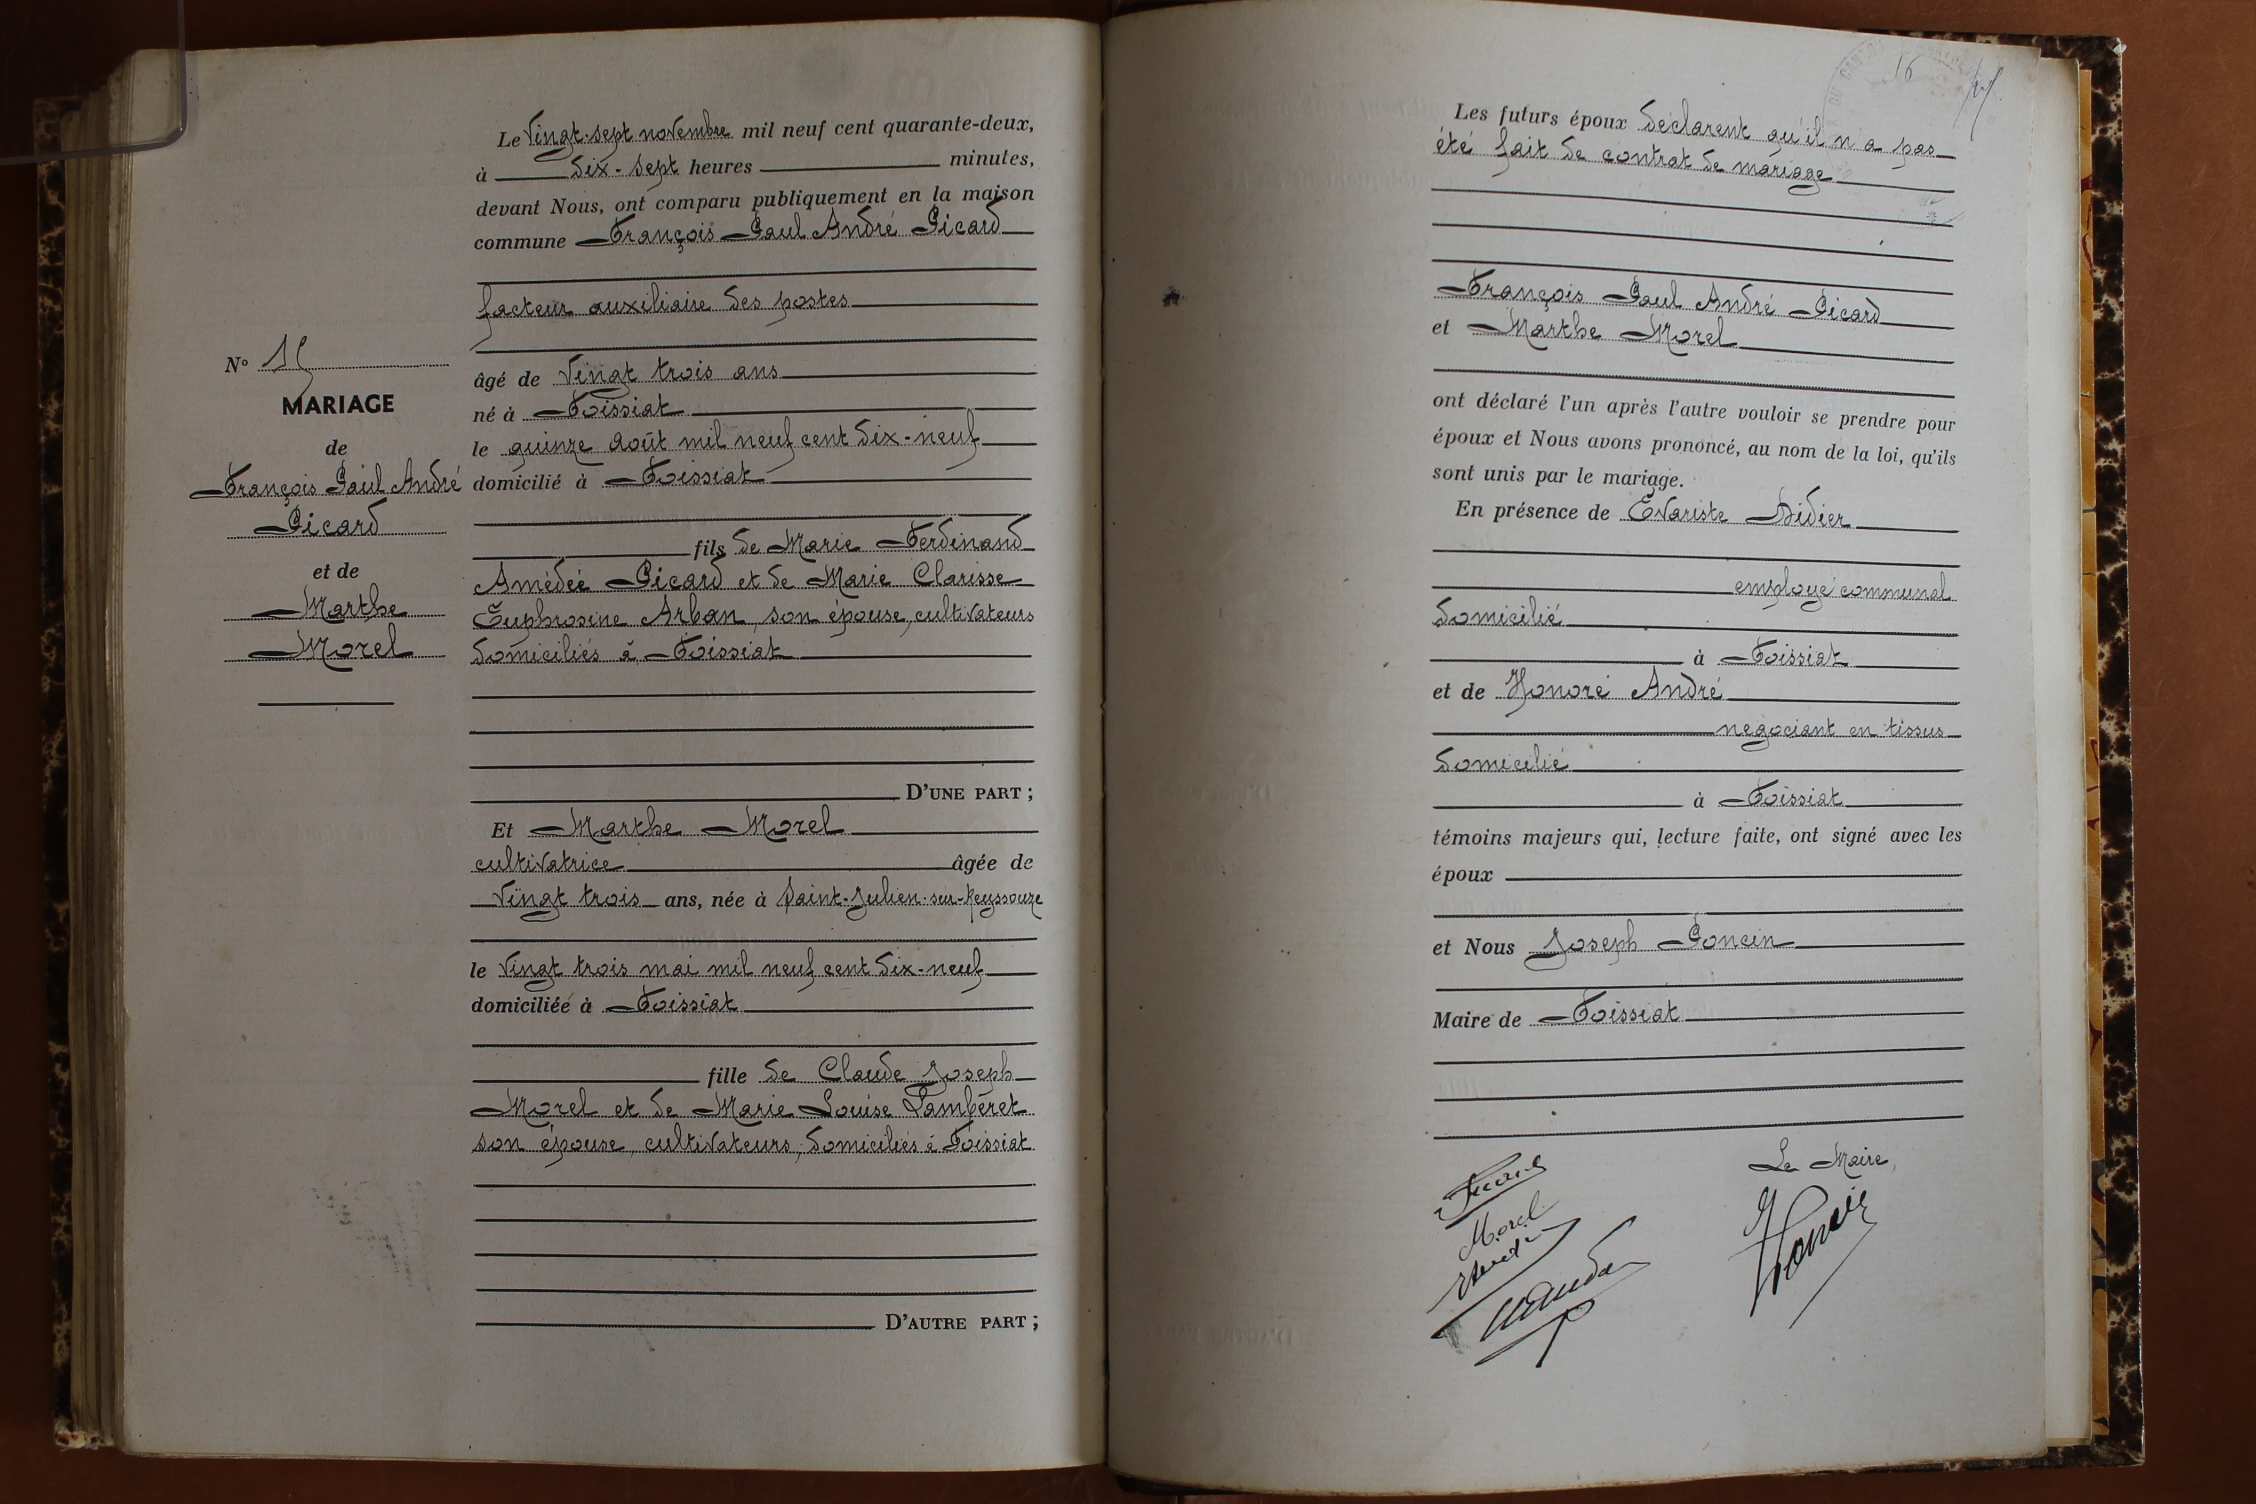 Le Vingt-sept novembre mil neuf cent quarante-deux,
à dix-sept heures minutes,
devant Nous, ont comparu publiquement en la maison
commune François Paul André Picard
facteur auxiliaire des postes
âgé de vingt trois ans
né à Foissiat
le quinze août mil neuf cent dix-neuf
domicilié à Foissiat
fils de Marie Ferdinand
Amédée Picard et de Marie Clarisse
Euphrosine Arban, son épouse, cultivateurs
domiciliés à Foissiat
D'UNE PART ;
Et Marthe Morel
cultivatrice âgée de
vingt trois ans, née à Saint-Julien-sur-Reyssouze
le vingt trois mai mil neuf cent dix-neuf
domiciliée à Foissiat
fille de Claude Joseph
Morel et de Marie Louise Lambéret
son épouse, cultivateurs, domiciliés à Foissiat
D'AUTRE PART ;
N° 15
MARIAGE
de
François Paul André
Picard
et de
Marthe
Morel
16
Les futurs époux déclarent qu'il n'a pas
été fait de contrat de mariage
François Paul André Picard
et Marthe Morel
ont déclaré l'un après l'autre vouloir se prendre pour
époux et Nous avons prononcé, au nom de la loi, qu'ils
sont unis par le mariage.
En présence de Evariste Didier
employé communal
domicilié
à Foissiat
et de Honoré André
négociant en tissus
domicilié
à Foissiat
témoins majeurs qui, lecture faite, ont signé avec les
époux
et Nous Joseph Poncin
Maire de Foissiat
Le Maire,
Picard
Morel
Poncin